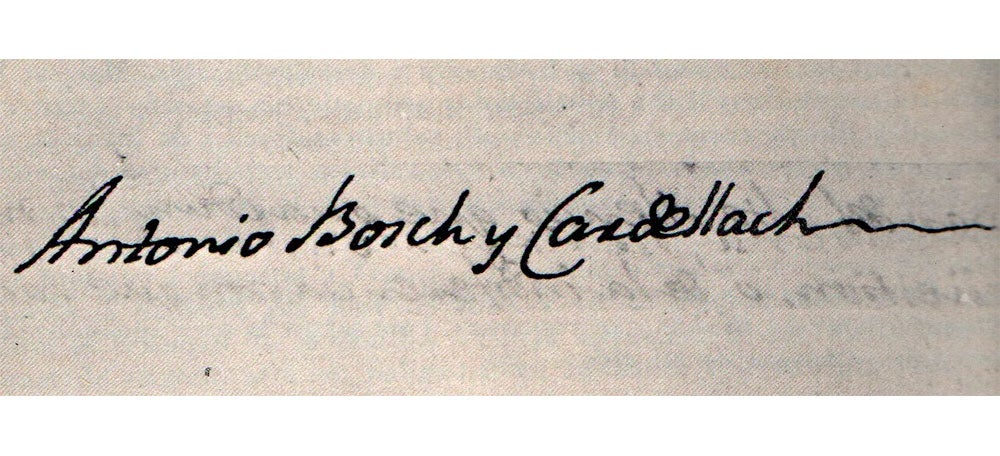 Antonio Bosch y Cardellach